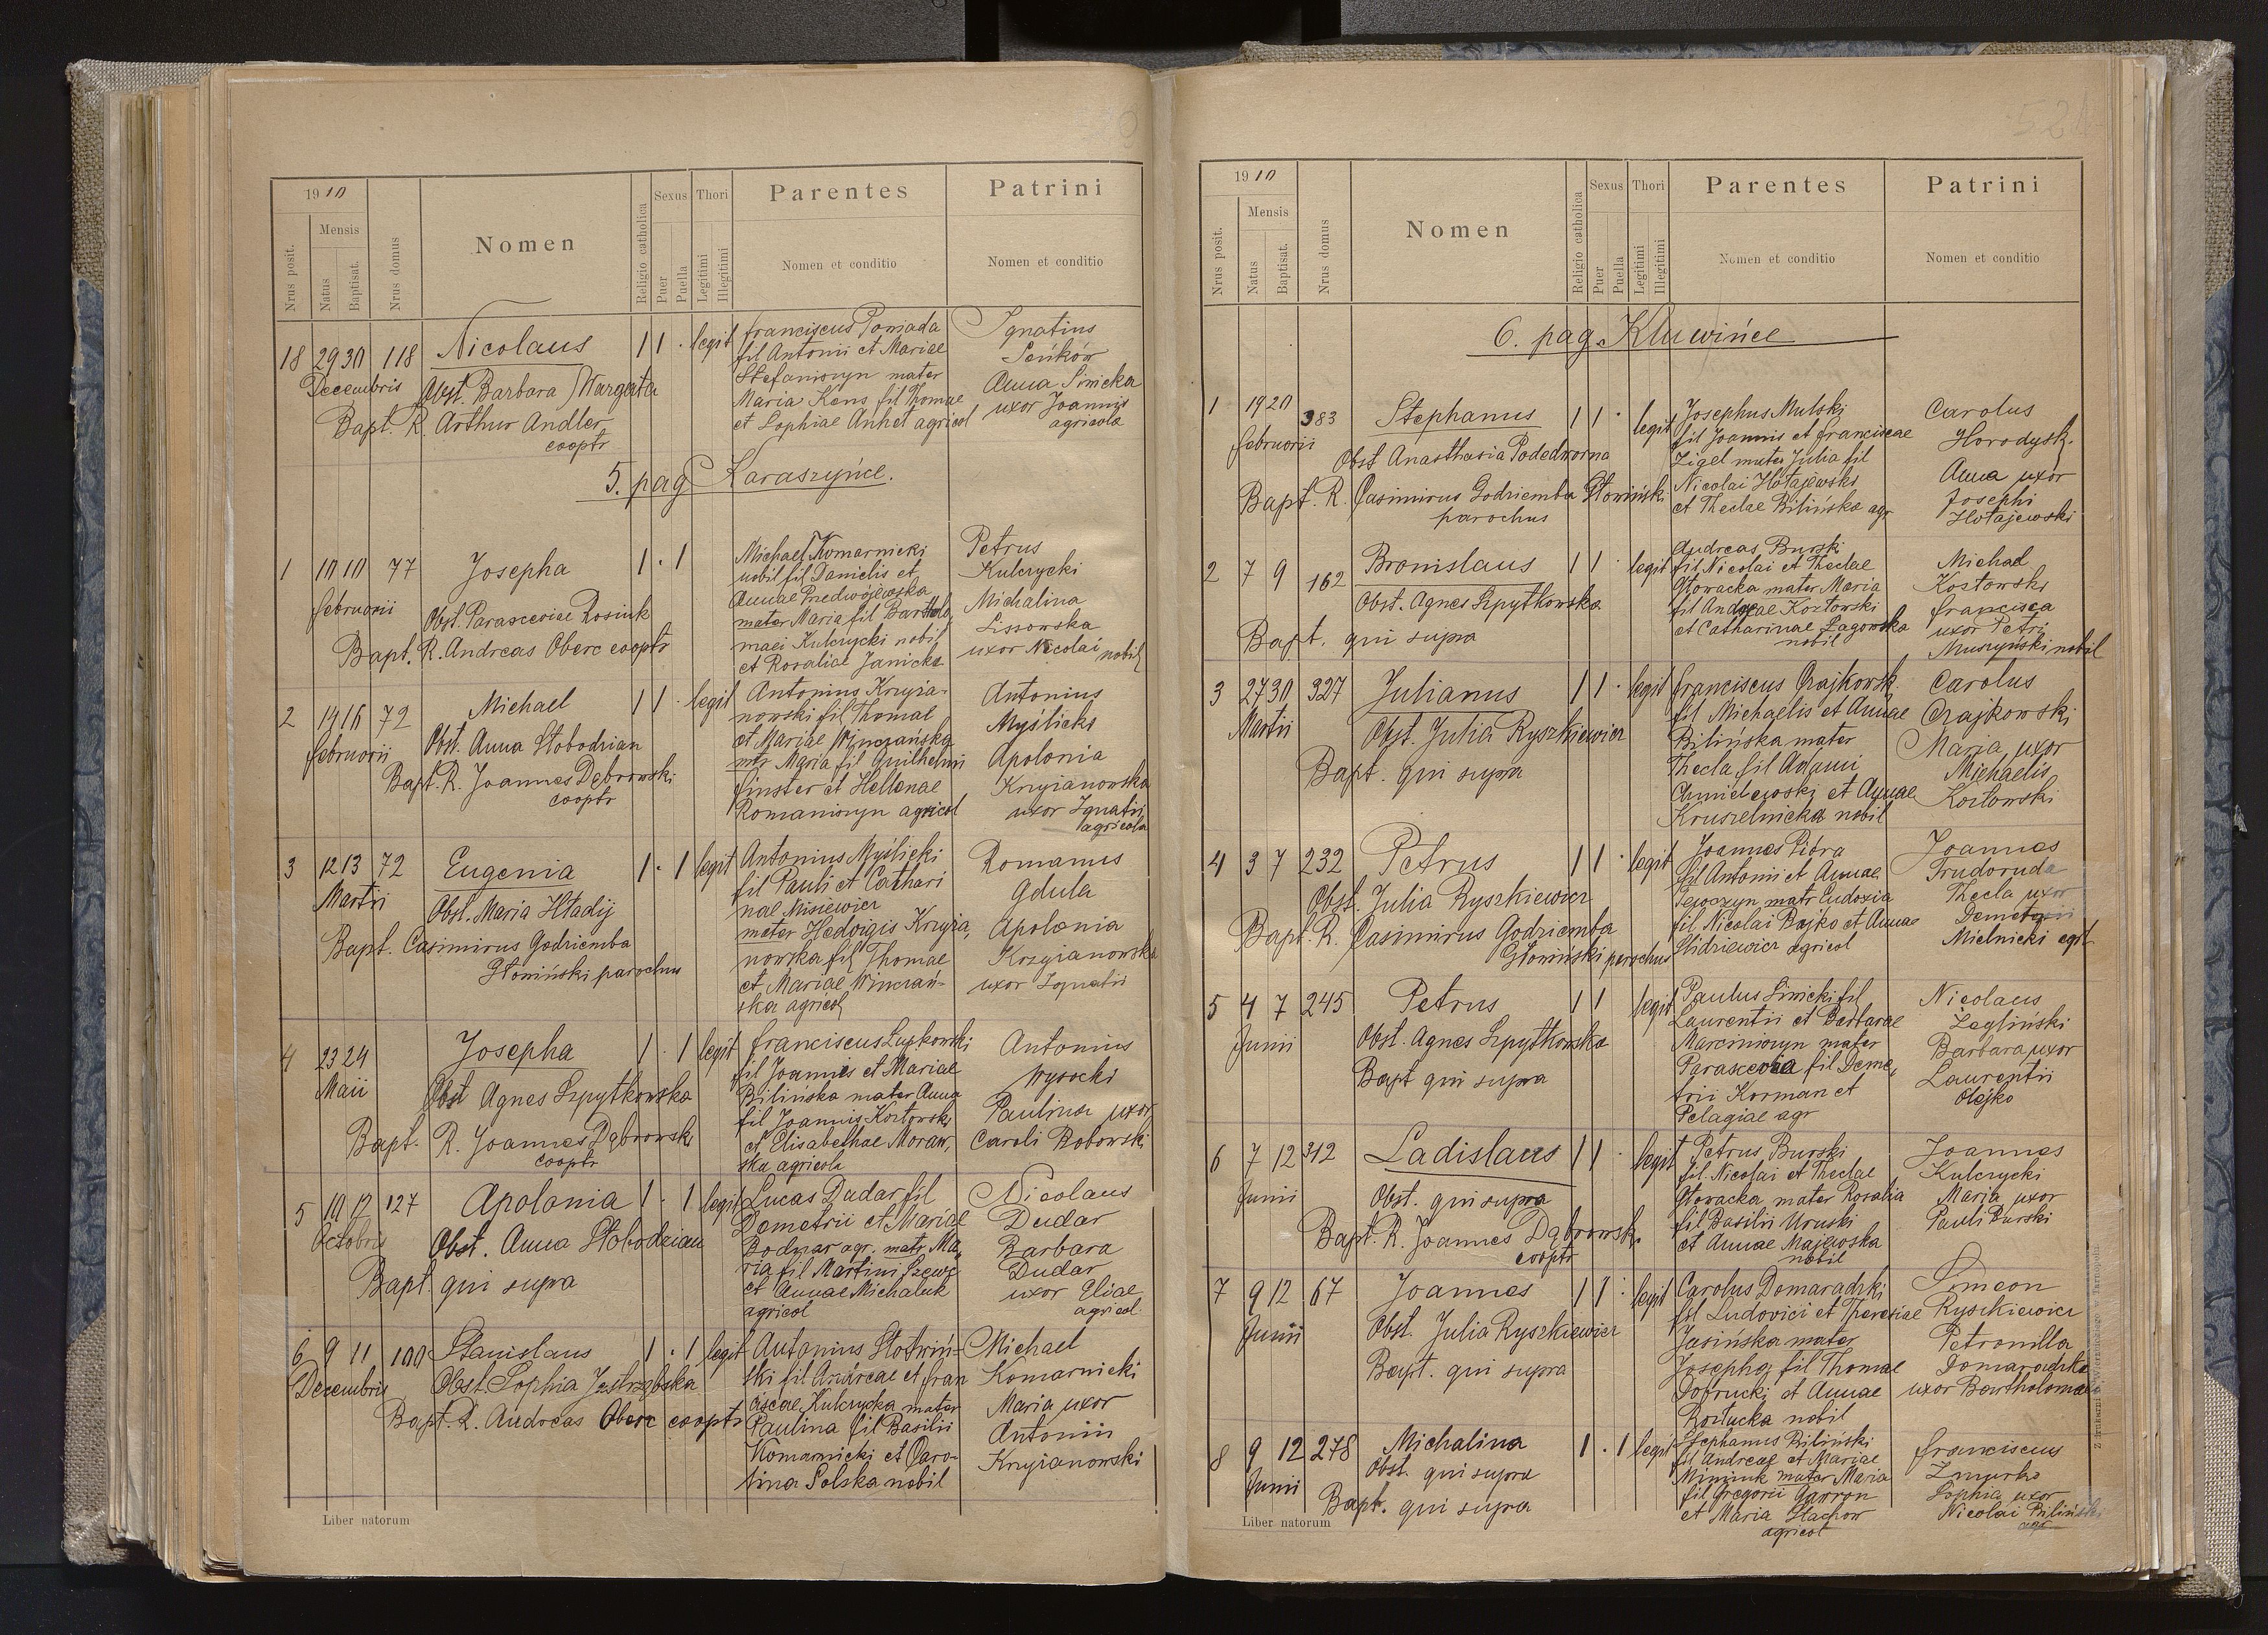 1910
Nrus posit.
Mensis
Natus
Baptisat.
Nrus domus
Nomen
Religio catholica
Sexus
Puer
Puella
Thori
Legitimi
Illegitimi
Parentes
Nomen et conditio
Patrini
Nomen et conditio
18 29 30 118 Nicolaus 1 1 · legit
Decembris Obst. Barbara Wargata
Bapt. R. Arthur Andler
cooptr
Franciscus Pomada
fil Antonii et Mariae
Stefaniszyn mater
Maria Kens fil Thomae
et Sophiae Anhel agricol
Ignatius
Seńków
Anna Sinicka
uxor Joannis
agricola
5. pag Karaszyńce.
1 10 10 77 Josepha 1 · 1
Februarii Obst. Parasceviae Rosiuk
Bapt. R. Andreas Oberc cooptr
Michael Komarnicki
nobil fil Danielis et
Annae Przedwojewska
mater Maria fil Bartholo
maei Kulczycki nobil
et Rosaliae Janicka
Petrus
Kulczycki
Michalina
Lissowska
uxor Nicolai nobil
2 14 16 72 Michael 1 1 · legit
Februarii Obst. Anna Słobodzian
Bapt. R. Joannes Dąbrowski
cooptr
Antonius Krzyża-
nowski fil Thomae
et Mariae Winczańska
mtr Maria fil Guilhelmi
Finster et Hellenae
Romaniszyn agricol
Antonius
Myślicki
Apolonia
Krzyżanowska
uxor Ignatii
agricola
3 12 13 72 Eugenia 1 · 1 legit
Martii Obst. Maria Hładij
Bapt. Casimirus Godziemba
Głowiński parochus
Antonius Myślicki
fil Pauli et Cathari
nae Misiewicz
mater Hedvigis Krzyża,
nowska fil Thomae
et Mariae Winczań-
ska agricol
Romanus
Gdula
Apolonia
Krzyżanowska
uxor Ignatii
4 23 24 Josepha 1 · 1 legit
Maii Obst Agnes Szpytkowska
Bapt. R. Joannes Dąbrowski
cooptr
Franciscus Łuszkowski
fil Joannis et Mariae
Bilińska mater Anna
fil Joannis Kozłowski
et Elisabethae Moraw,
ska agricola
Antonius
Wysocki
Paulina uxor
Caroli Bobowski
5 10 12 127 Apolonia 1 · 1 legit
Octobris Obst. Anna Słobodzian
Bapt. qui supra
Lucas Dudar fil
Demetrii et Mariae
Bodnar agr. matr Ma,
ria fil Martini Szewc
et Annae Michaluk
agricol
Nicolaus
Dudar
Barbara
Dudar
uxor Eliae
agricol.
6 9 11 100 Stanislaus 1 · 1 legit
Decembris Obst. Sophia Jastrzębska
Bapt. R. Andreas Oberc cooptr
Antonius Słotwiń-
ski fil Andreae et Fran
ciscae Kulczycka mater
Paulina fil Basilii
Komarnicki et Caro-
lina Solska nobil
Michael
Komarnicki
Maria uxor
Antonii
Krzyżanowski
Liber natorum
1910
Nrus posit.
Mensis
Natus
Baptisat.
Nrus domus
Nomen
Religio catholica
Sexus
Puer
Puella
Thori
Legitimi
Illegitimi
Parentes
Nomen et conditio
Patrini
Nomen et conditio
6. pag. Kluwińce
1 19 20 383 Stephanus 1 1 · legit
Februarii Obst Anasthasia Podedworna
Bapt. R. Casimirus Godziemba Głowiński
parochus
Josephus Mulski
fil Joannis et Franciscae
Zigel mater Julia fil
Nicolai Hołajewski
et Theclae Bilińska agr
Carolus
Horodysk.
Anna uxor
Josephi
Hołajewski
2 7 9 162 Bronislaus 1 1 · legit
Obst. Agnes Szpytkowska
Bapt. qui supra
Andreas Burski
fil Nicolai et Theclae
Głowacka mater Maria
fil Andreae Kozłowski
et Catharinae Łagowska
nobil
Michael
Kozłowski
Francisca
uxor Petri
Muszyński nobil
3 27 30 327 Julianus 1 1 · legit
Martii Obst. Julia Ryszkiewicz
Bapt. qui supra
Franciscus Czajkowsk.
fil Michaelis et Annae
Bilińska mater
Thecla fil Adami
Chmielewski et Annae
Kruszelnicka nobil
Carolus
Czajkowski
Maria uxor
Michaelis
Kozłowski
4 3 7 232 Petrus 1 1 · legit
Obst. Julia Ryszkiewicz
Bapt. R. Casimirus Godziemba
Głowiński parochus
Joannes Pióra
fil Antonii et Annae
matr Eudoxia
fil Nicolai Bojko et Annae
agricol
Joannes
Trudoruda
Thecla uxor
Demetrii
Mielnicki
5 4 7 245 Petrus 1 1 legit
Junii Obst. Agnes Szpytkowska
Bapt qui supra
Paulus Sinicki fil
Laurentii et Barbarae
Marciniszyn mater
Parascevia fil Deme,
trii Korman et
Pelagiae agr
Nicolaus
Zegliński
Barbara uxor
Laurentii
Olejko
6 7 12 312 Ladislaus 1 1 · legit
Junii Obst. qui supra
Bapt. R. Joannes Dąbrowsk.
cooptr
Petrus Burski
fil. Nicolai et Theclae
Głowacka mater Rosalia
fil Basilii Uruski
et Annae Majewska
nobil
Joannes
Kulczycki
Maria uxor
Pauli Burski
7 9 12 67 Joannes 1 1 · legit
Junii Obst. Julia Ryszkiewicz
Bapt. qui supra
Carolus Domaradzki
fil Ludovici et Theresiae
Jasińska mater
Josepha fil Thomae
Dobrucki et Annae
Kozłucka nobil
Simeon
Ryszkiewicz
Petronella
Domaradzka
uxor Bartholomaei
8 9 12 278 Michalina 1 · 1 legit
Junii Obst. qui supra
Bapt. qui supra
Stephanus Biliński
fil Andreae et Mariae
mater Maria
fil Gregorii Gawron
et Maria Stachow
agricol
Franciscus
Zmurko
Sophia uxor
Nicolai Biliński
agr
Liber natorum